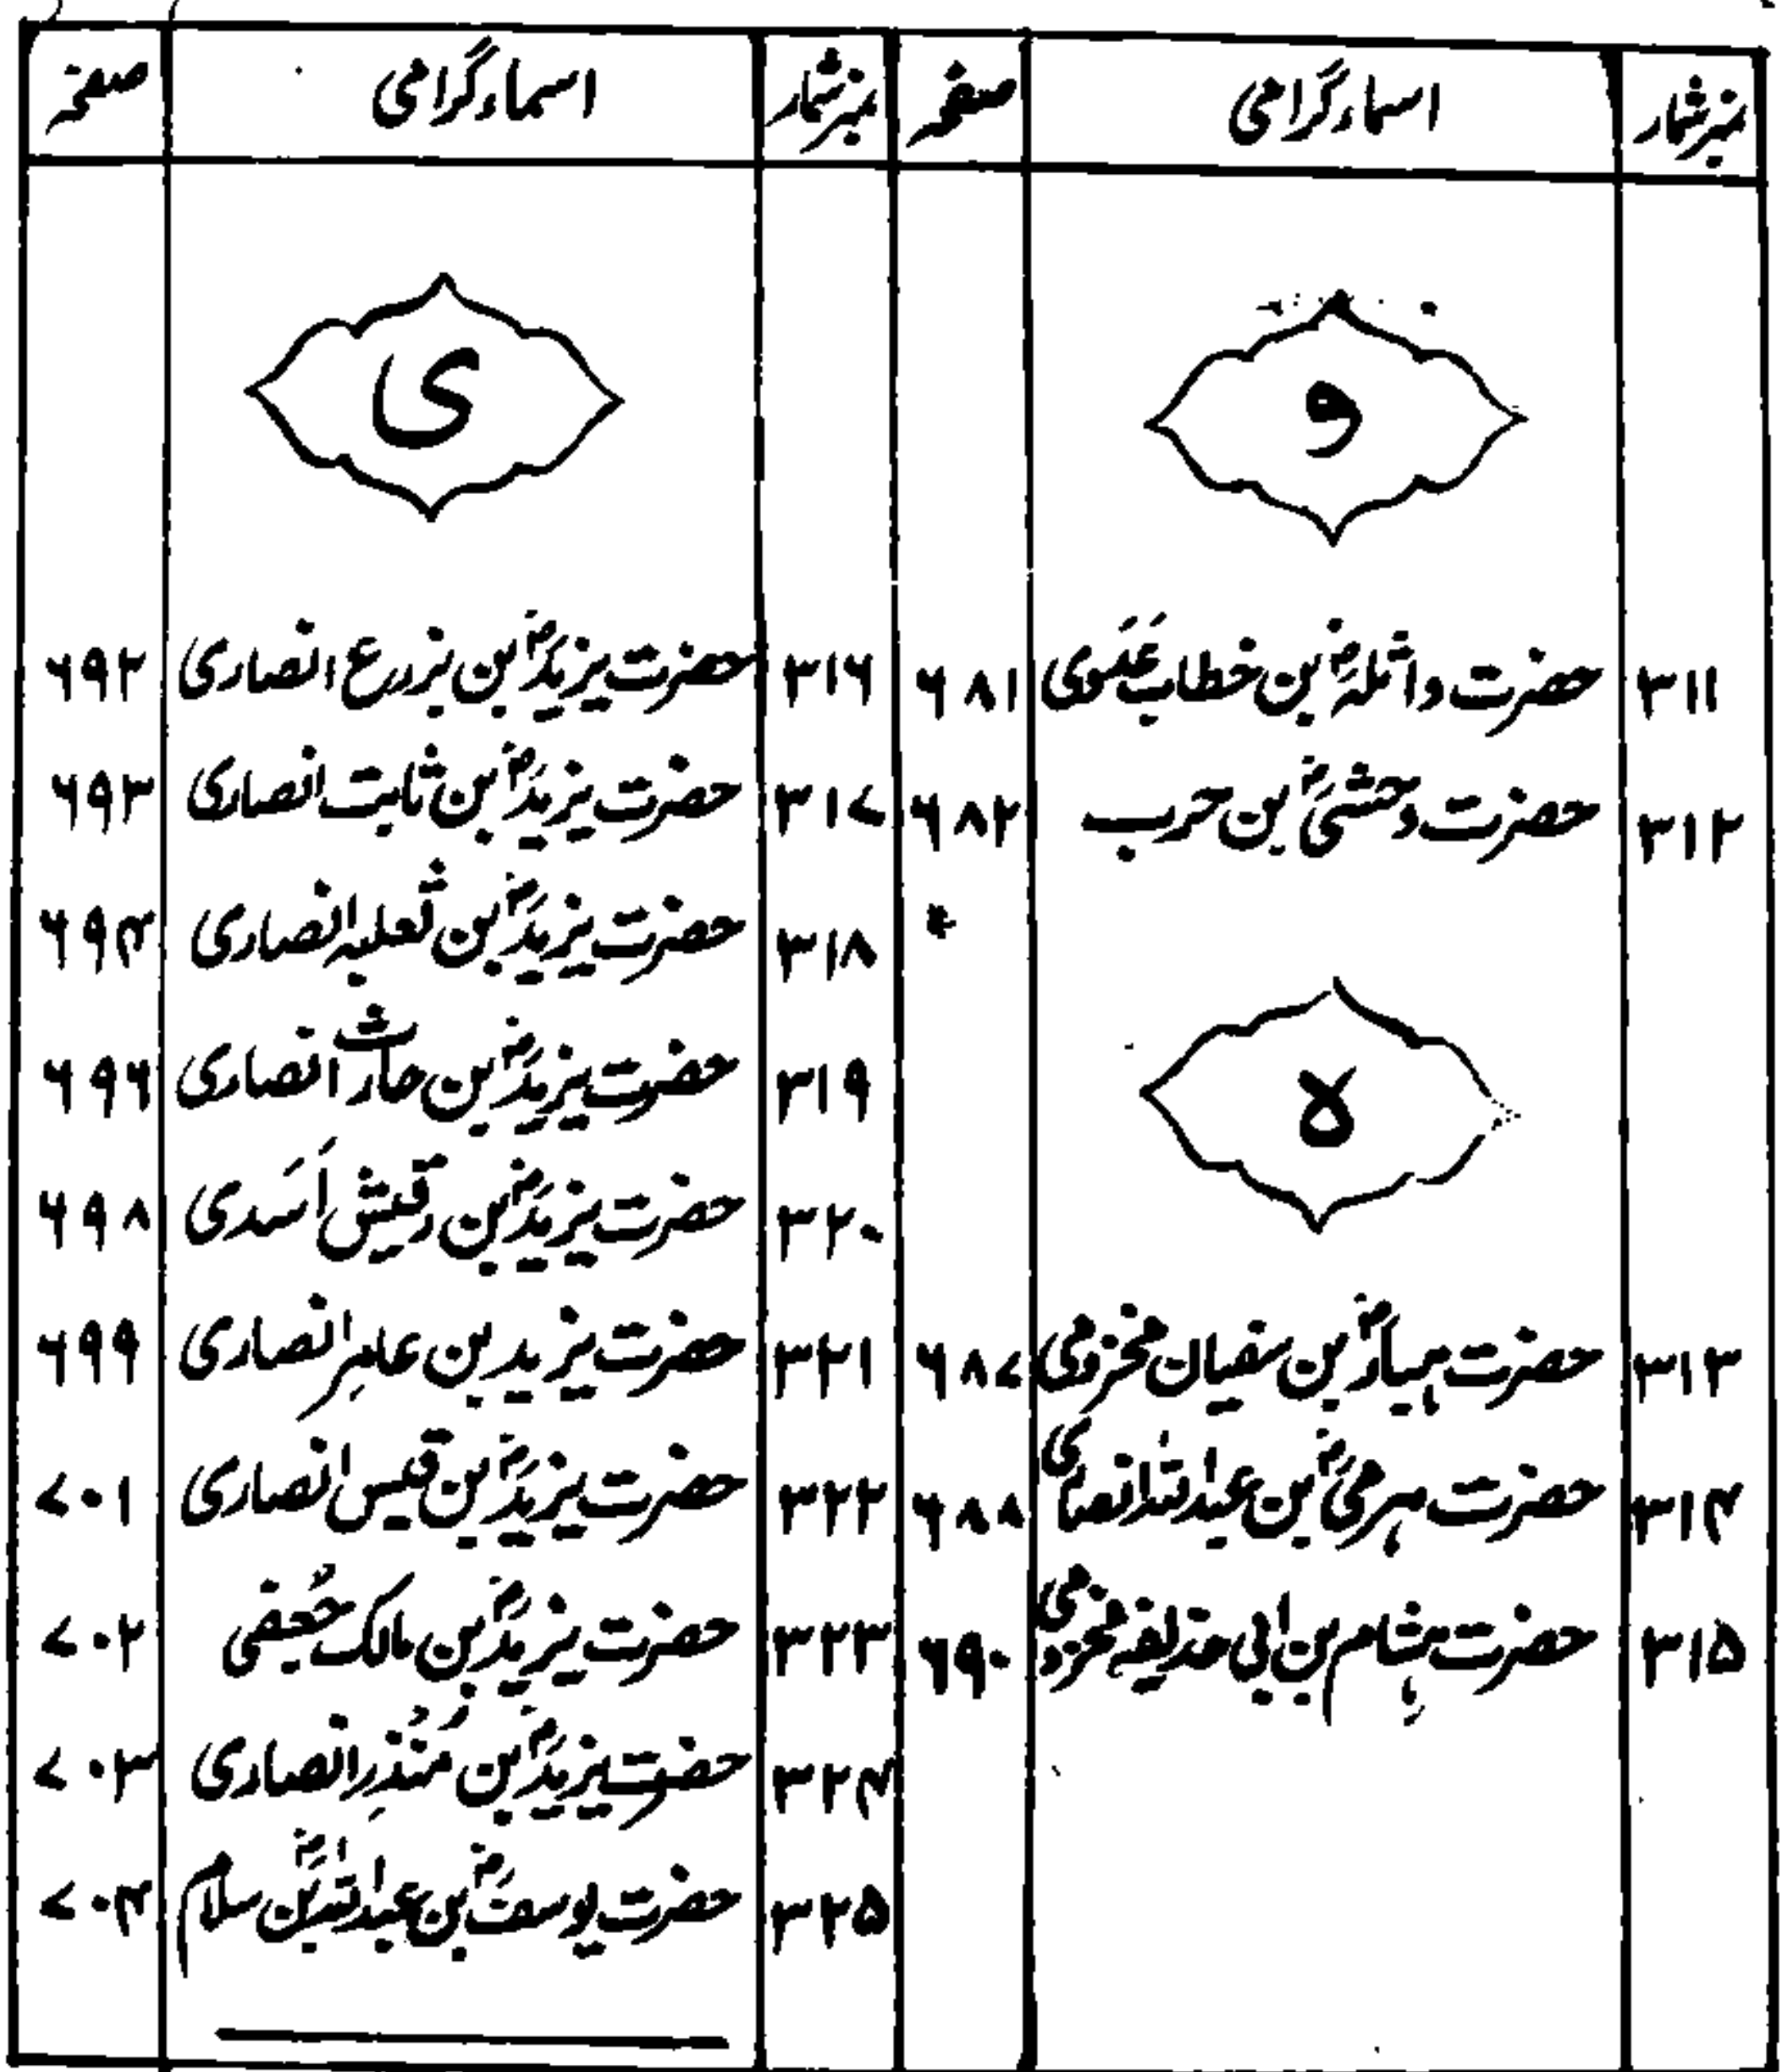 نمبر شمار اسماء گرامی صفحہ
و
۳۱۱ حضرت واثلہؓ بن خطاب عَدَوی ۶۸۱
۳۱۲ حضرت وحشیؓ بن حرب ۶۸۲
ہ
۳۱۳ حضرت ہبارؓ بن سفیان مخزومی ۶۸۷
۳۱۴ حضرت ہرمیؓ بن عبداللہ انصاری ۶۸۸
۳۱۵ حضرت ہشام بن ابی حذیفہ مخزومی ۶۹۰
نمبر شمار اسماء گرامی صفحہ
ی
۳۱۶ حضرت یزیدؓ بن برذع انصاری ۶۹۲
۳۱۷ حضرت یزیدؓ بن ثابت انصاری ۶۹۳
۳۱۸ حضرت یزیدؓ بن ثعلبہ انصاری ۶۹۴
۳۱۹ حضرت یزیدؓ بن حارث انصاری ۶۹۶
۳۲۰ حضرت یزیدؓ بن رقیش اَسَدی ۶۹۸
۳۲۱ حضرت یزید بن عامر انصاری ۶۹۹
۳۲۲ حضرت یزیدؓ بن قیس انصاری ۷۰۱
۳۲۳ حضرت یزیدؓ بن مالک جُعفی ۷۰۲
۳۲۴ حضرت یزیدؓ بن مُنْذِر انصاری ۷۰۳
۳۲۵ حضرت یوسفؓ بن عبداللہؓ بن سلام ۷۰۴